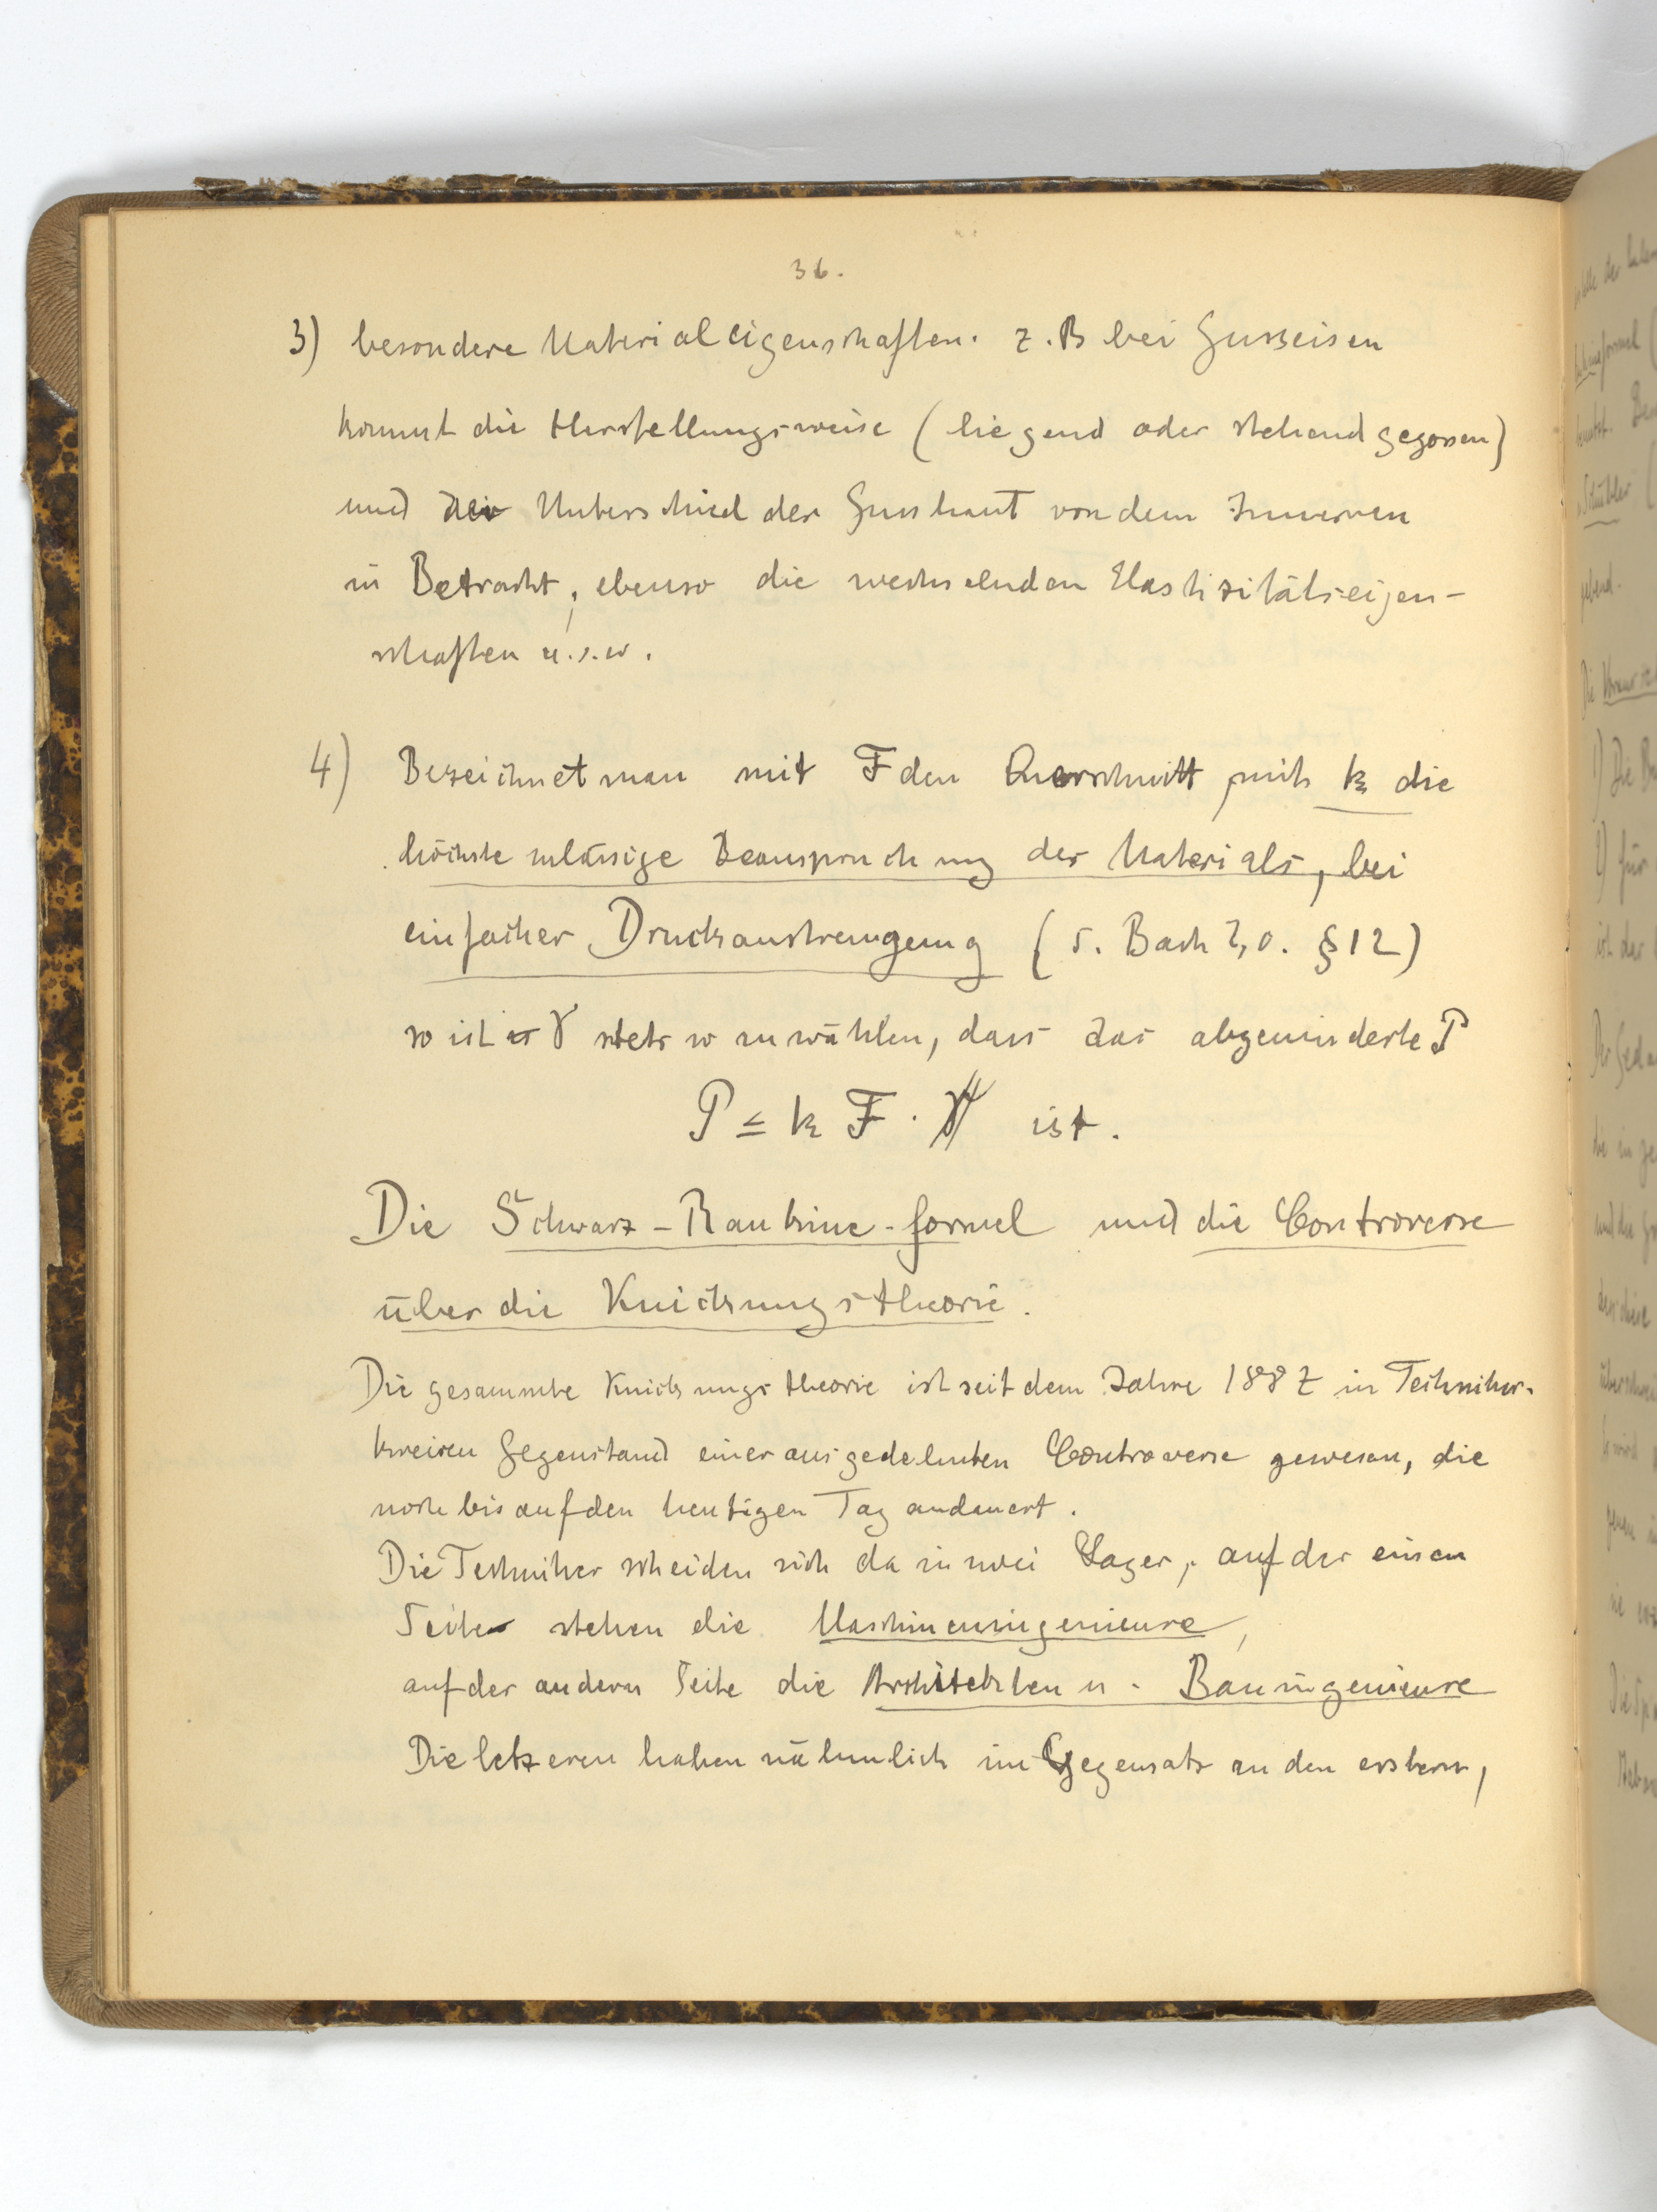 36.
3) besondere Materialeigenschaften. z.B bei Gusseisen
kommt die Herstellungsweise (liegend oder stehend gegossen)
und der Unterschied der Gusshaut von dem Inneren
in Betracht, ebenso die wechselnden Elastizitätseigen-
schaften u.s.w.
4) Bezeichnet man mit F den Querschnitt, mit k die
höchste zulässige Beanspruchung des Materials, bei
einfacher Druckanstrengung (s. Bach §12)
so ist γ stets so zu wählen, dass das abgeminderte P
P ≤ k F. ist.
Die Schwarz-Rankine-formel und die Controverse
über die Knickungstheorie.
Die gesammte Knickungstheorie ist seit dem Jahre 1887 in Techniker-
kreisen Gegenstand einer ausgedehnten Controverse gewesen, die
noch bis auf den heutigen Tag andauert.
Die Techniker scheiden sich da in zwei Lager, auf der einen
Seite stehen die Maschineningenieure,
auf der andern Seite die Architekten u. Bauingenieure
Die letzeren haben nähmlich im Gegensatz zu den erstern,